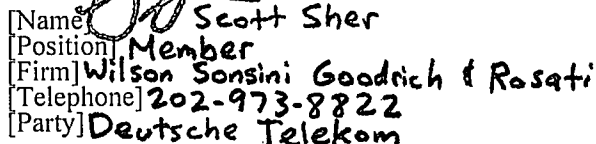 [Name] Scott Sher
[Position] Member
[Firm] Wilson Sonsini Goodrich & Rosati
[Telephone] 202-973-8822
[Party] Deutsche Telekom